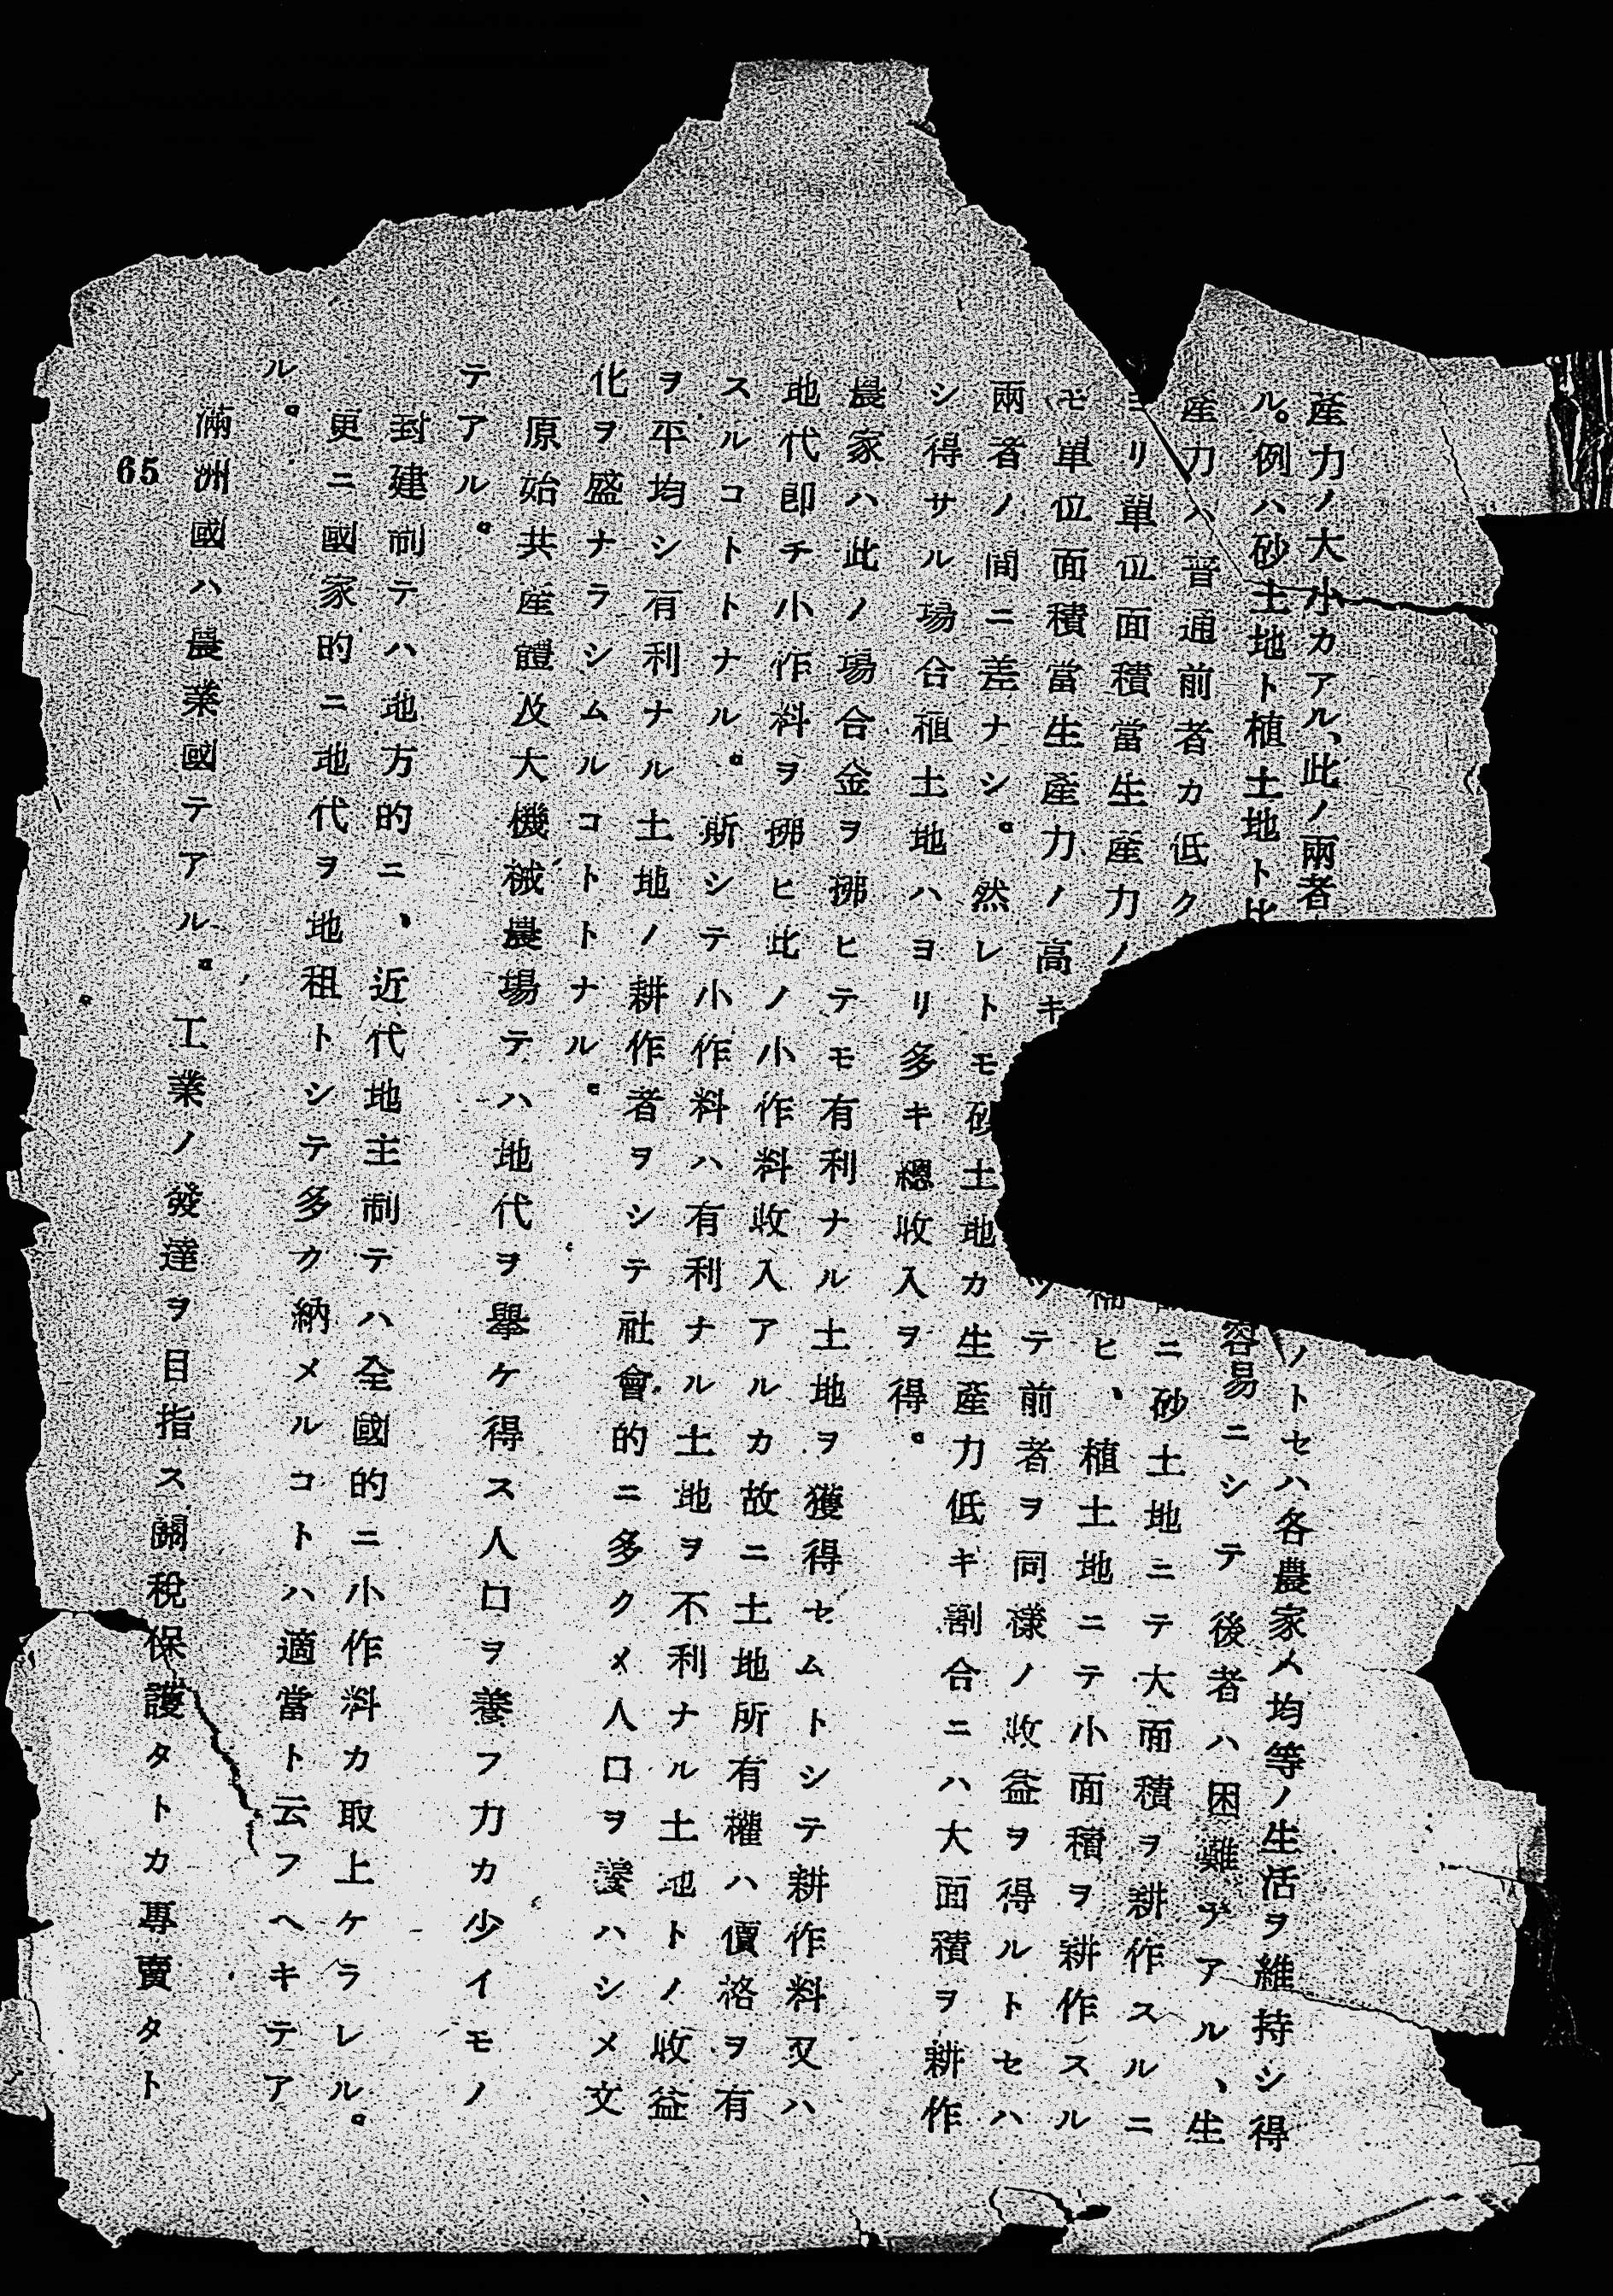 產力ノ大小カアル、此ノ兩者 ノトセハ各農家ハ均等ノ生活ヲ維持シ得
ル。例ハ砂土地ト植土地ト比 容易ニシテ後者ハ困難テアル、生
產力ハ普通前者カ低ク ニ砂土地ニテ大面積ヲ耕作スルニ
ヨリ單位面積當生產力ノ ヒ、植土地ニテ小面積ヲ耕作スル
モ單位面積當生產力ノ高キ テ前者ヲ同樣ノ收益ヲ得ルトセハ
兩者ノ間ニ差ナシ。然レトモ砂土地カ生產力低キ割合ニハ大面積ヲ耕作
シ得サル場合植土地ハヨリ多キ總收入ヲ得。
農家ハ此ノ場合金ヲ拂ヒテモ有利ナル土地ヲ獲得セムトシテ耕作料又ハ
地代卽チ小作料ヲ拂ヒ此ノ小作料收入アルカ故ニ土地所有權ハ價格ヲ有
スルコトトナル。斯シテ小作料ハ有利ナル土地ヲ不利ナル土地トノ收益
ヲ平均シ有利ナル土地ノ耕作者ヲシテ社會的ニ多クメ人口ヲ養ハシメ文
化ヲ盛ナラシムルコトトナル。
原始共產體及大機械農場テハ地代ヲ擧ケ得ス人口ヲ養フ力カ少イモノ
テアル。
封建制テハ地方的ニ、近代地主制テハ全國的ニ小作料カ取上ケラレル。
更ニ國家的ニ地代ヲ地租トシテ多ク納メルコトハ適當ト云フヘキテア
ル。
滿洲國ハ農業國テアル。工業ノ發達ヲ目指ス關稅保護タトカ專賣タト
65